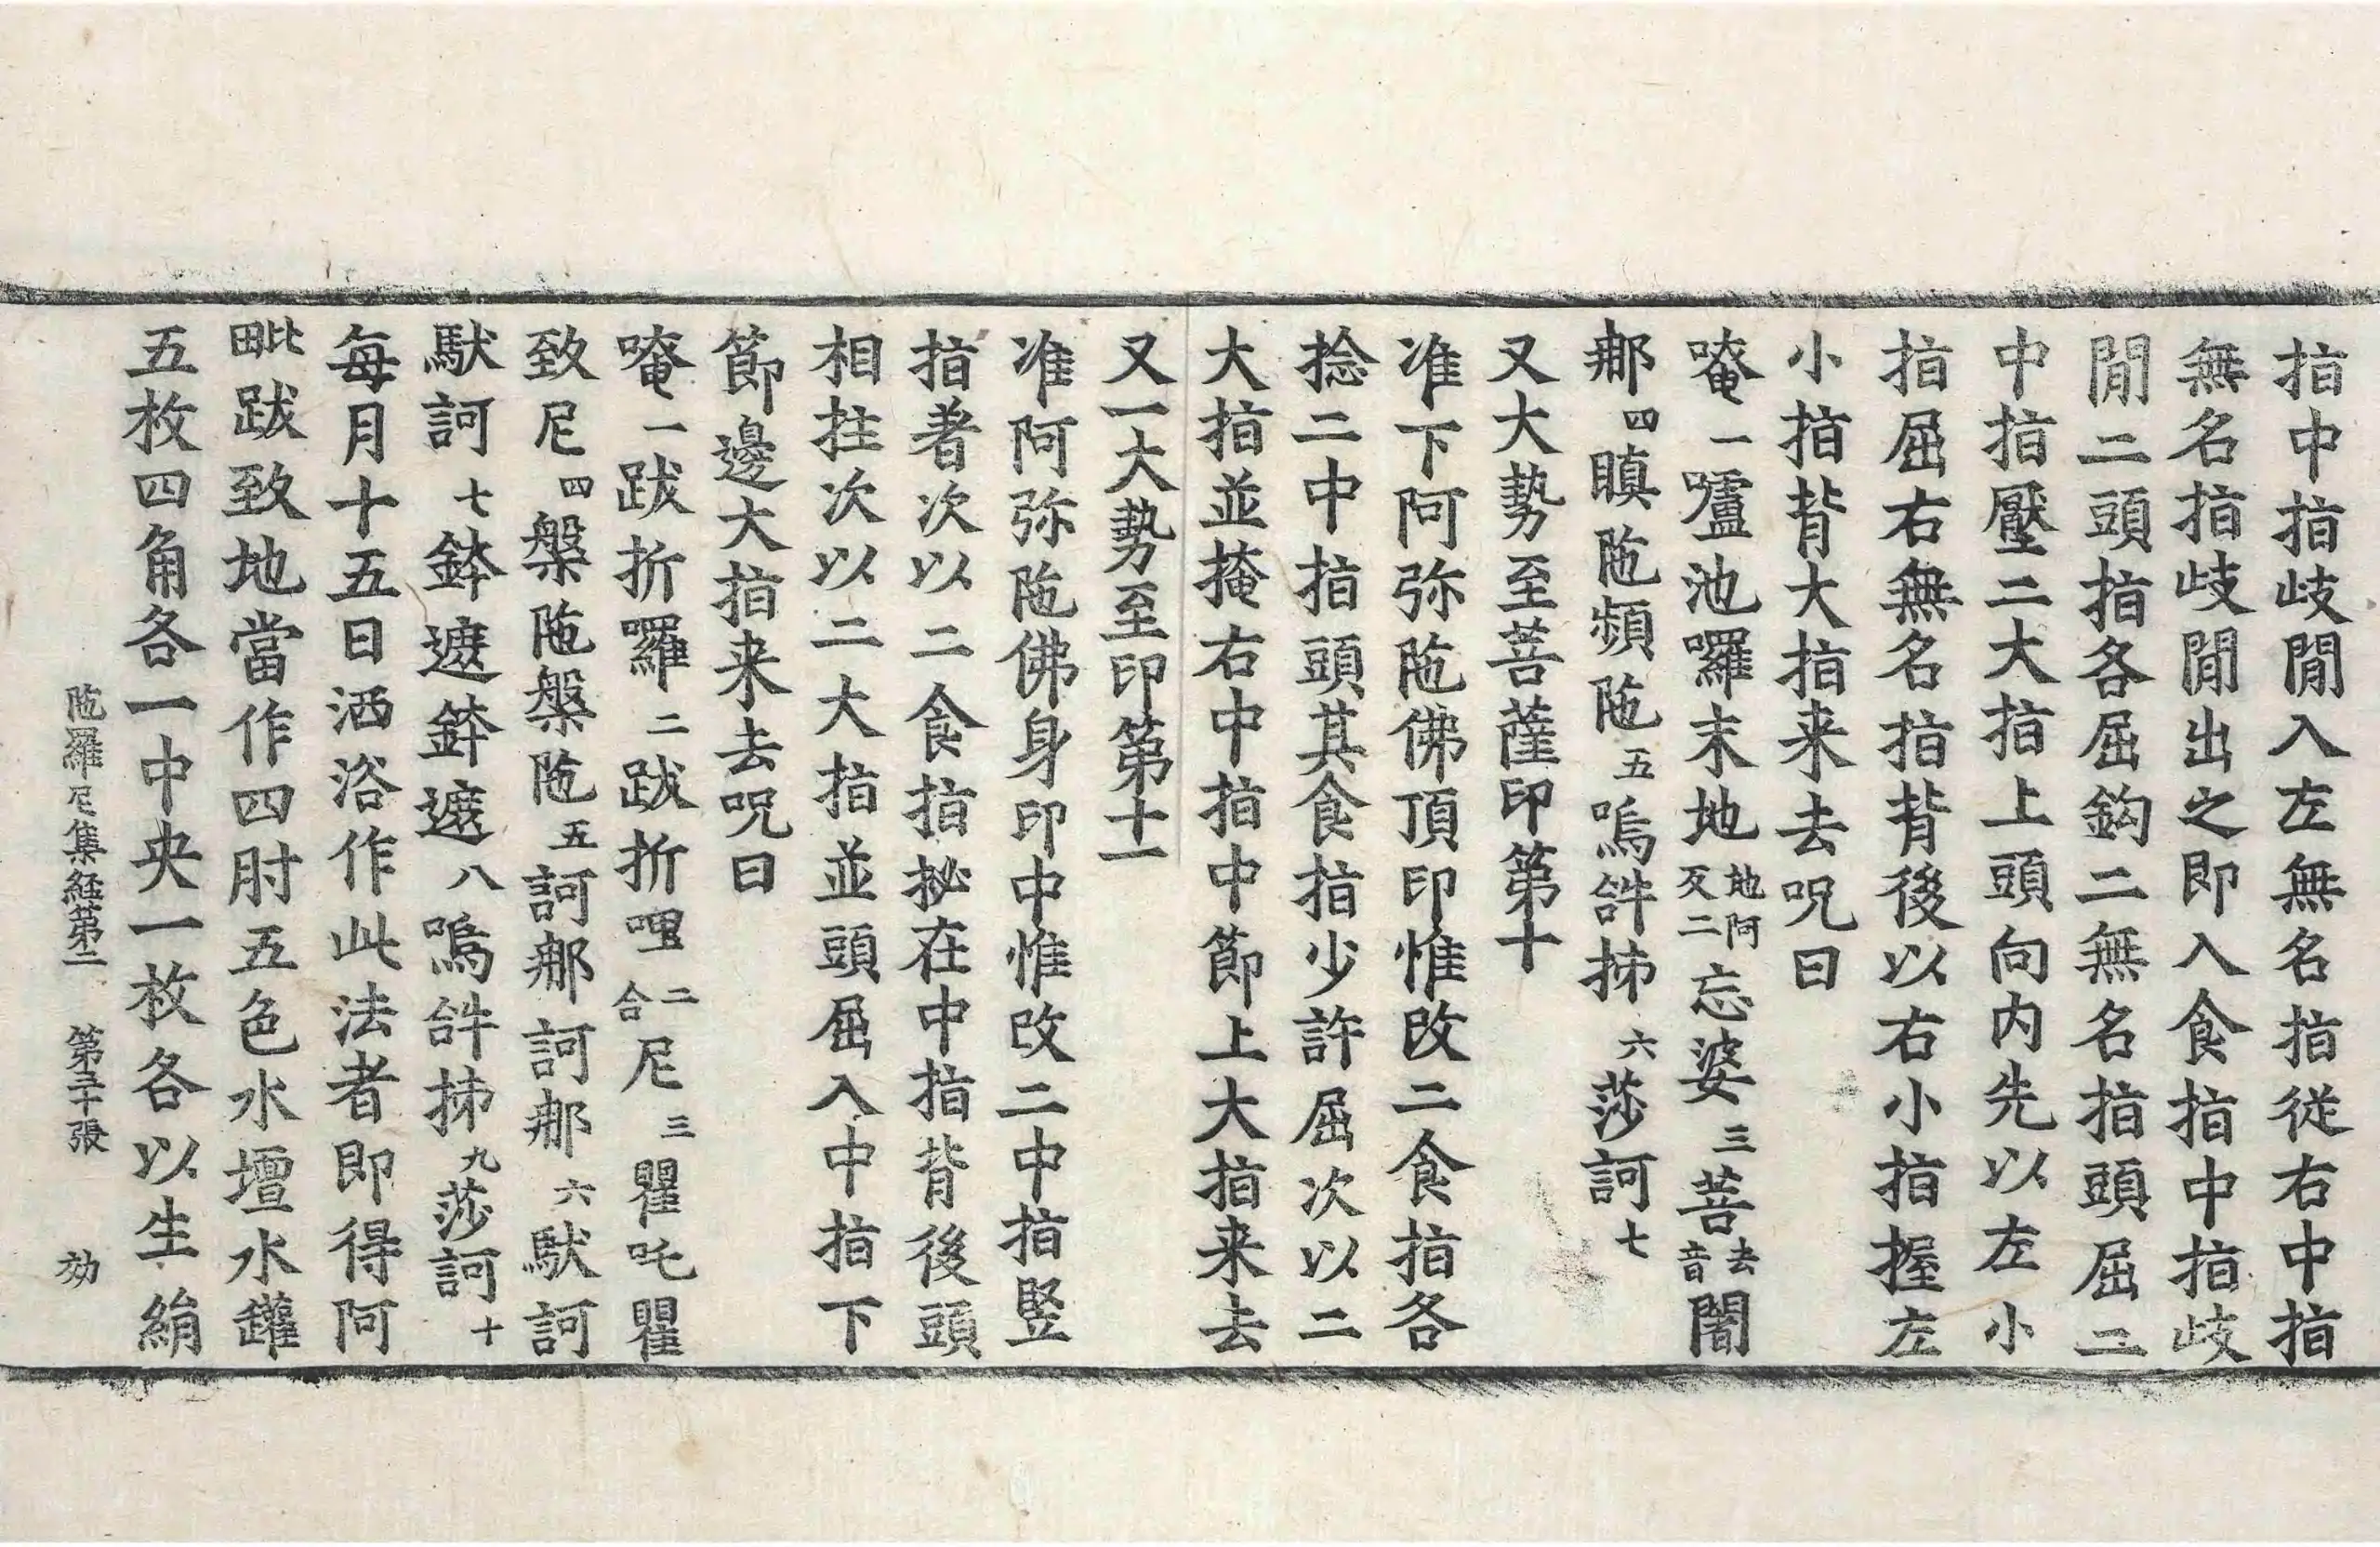 指中指歧間入左無名指從右中指
無名指歧間出之即入食指中指歧
間二頭指各屈鈎二無名指頭屈二
中指壓二大指上頭向内先以左小
指屈右無名指背後以右小指握左
小指背大指来去呪曰
唵一嚧池囉末地地阿反二忘婆三菩去音闇
那四瞋陁頻陁五嗚𤙖抺六莎訶七
又大勢至菩薩印第十
准下阿弥陁佛頂印惟改二食指各
捻二中指頭其食指少許屈次以二
大指並掩右中指中節上大指来去
又一大勢至印第十一
准阿弥陁佛身印中惟改二中指竪
指著次以二食指拶在中指背後頭
相拄次以二大指並頭屈入中指下
節邊大指来去呪曰
唵一跋折囉二跋折哩二合尼三瞿吒瞿
致尼四槃陁槃陁五訶那訶那六馱訶
馱訶七鉢遮鉢遮八嗚𤙖抺九莎訶十
每月十五日洒浴作此法者即得阿
毗跋致地當作四肘五色水壇水罐
五枚四角各一中央一枚各以生絹
陁羅尼集經第二 第三十張 効